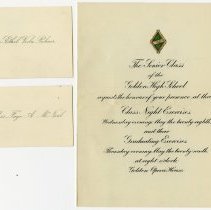 The Senior Class
of the
Golden High School
requests the honour of your presence at their
Class Night Exercises
Wednesday evening, May the twenty-eighth
and their
Graduating Exercises
Thursday evening, May the twenty-ninth
at eight o'clock
Golden Opera House